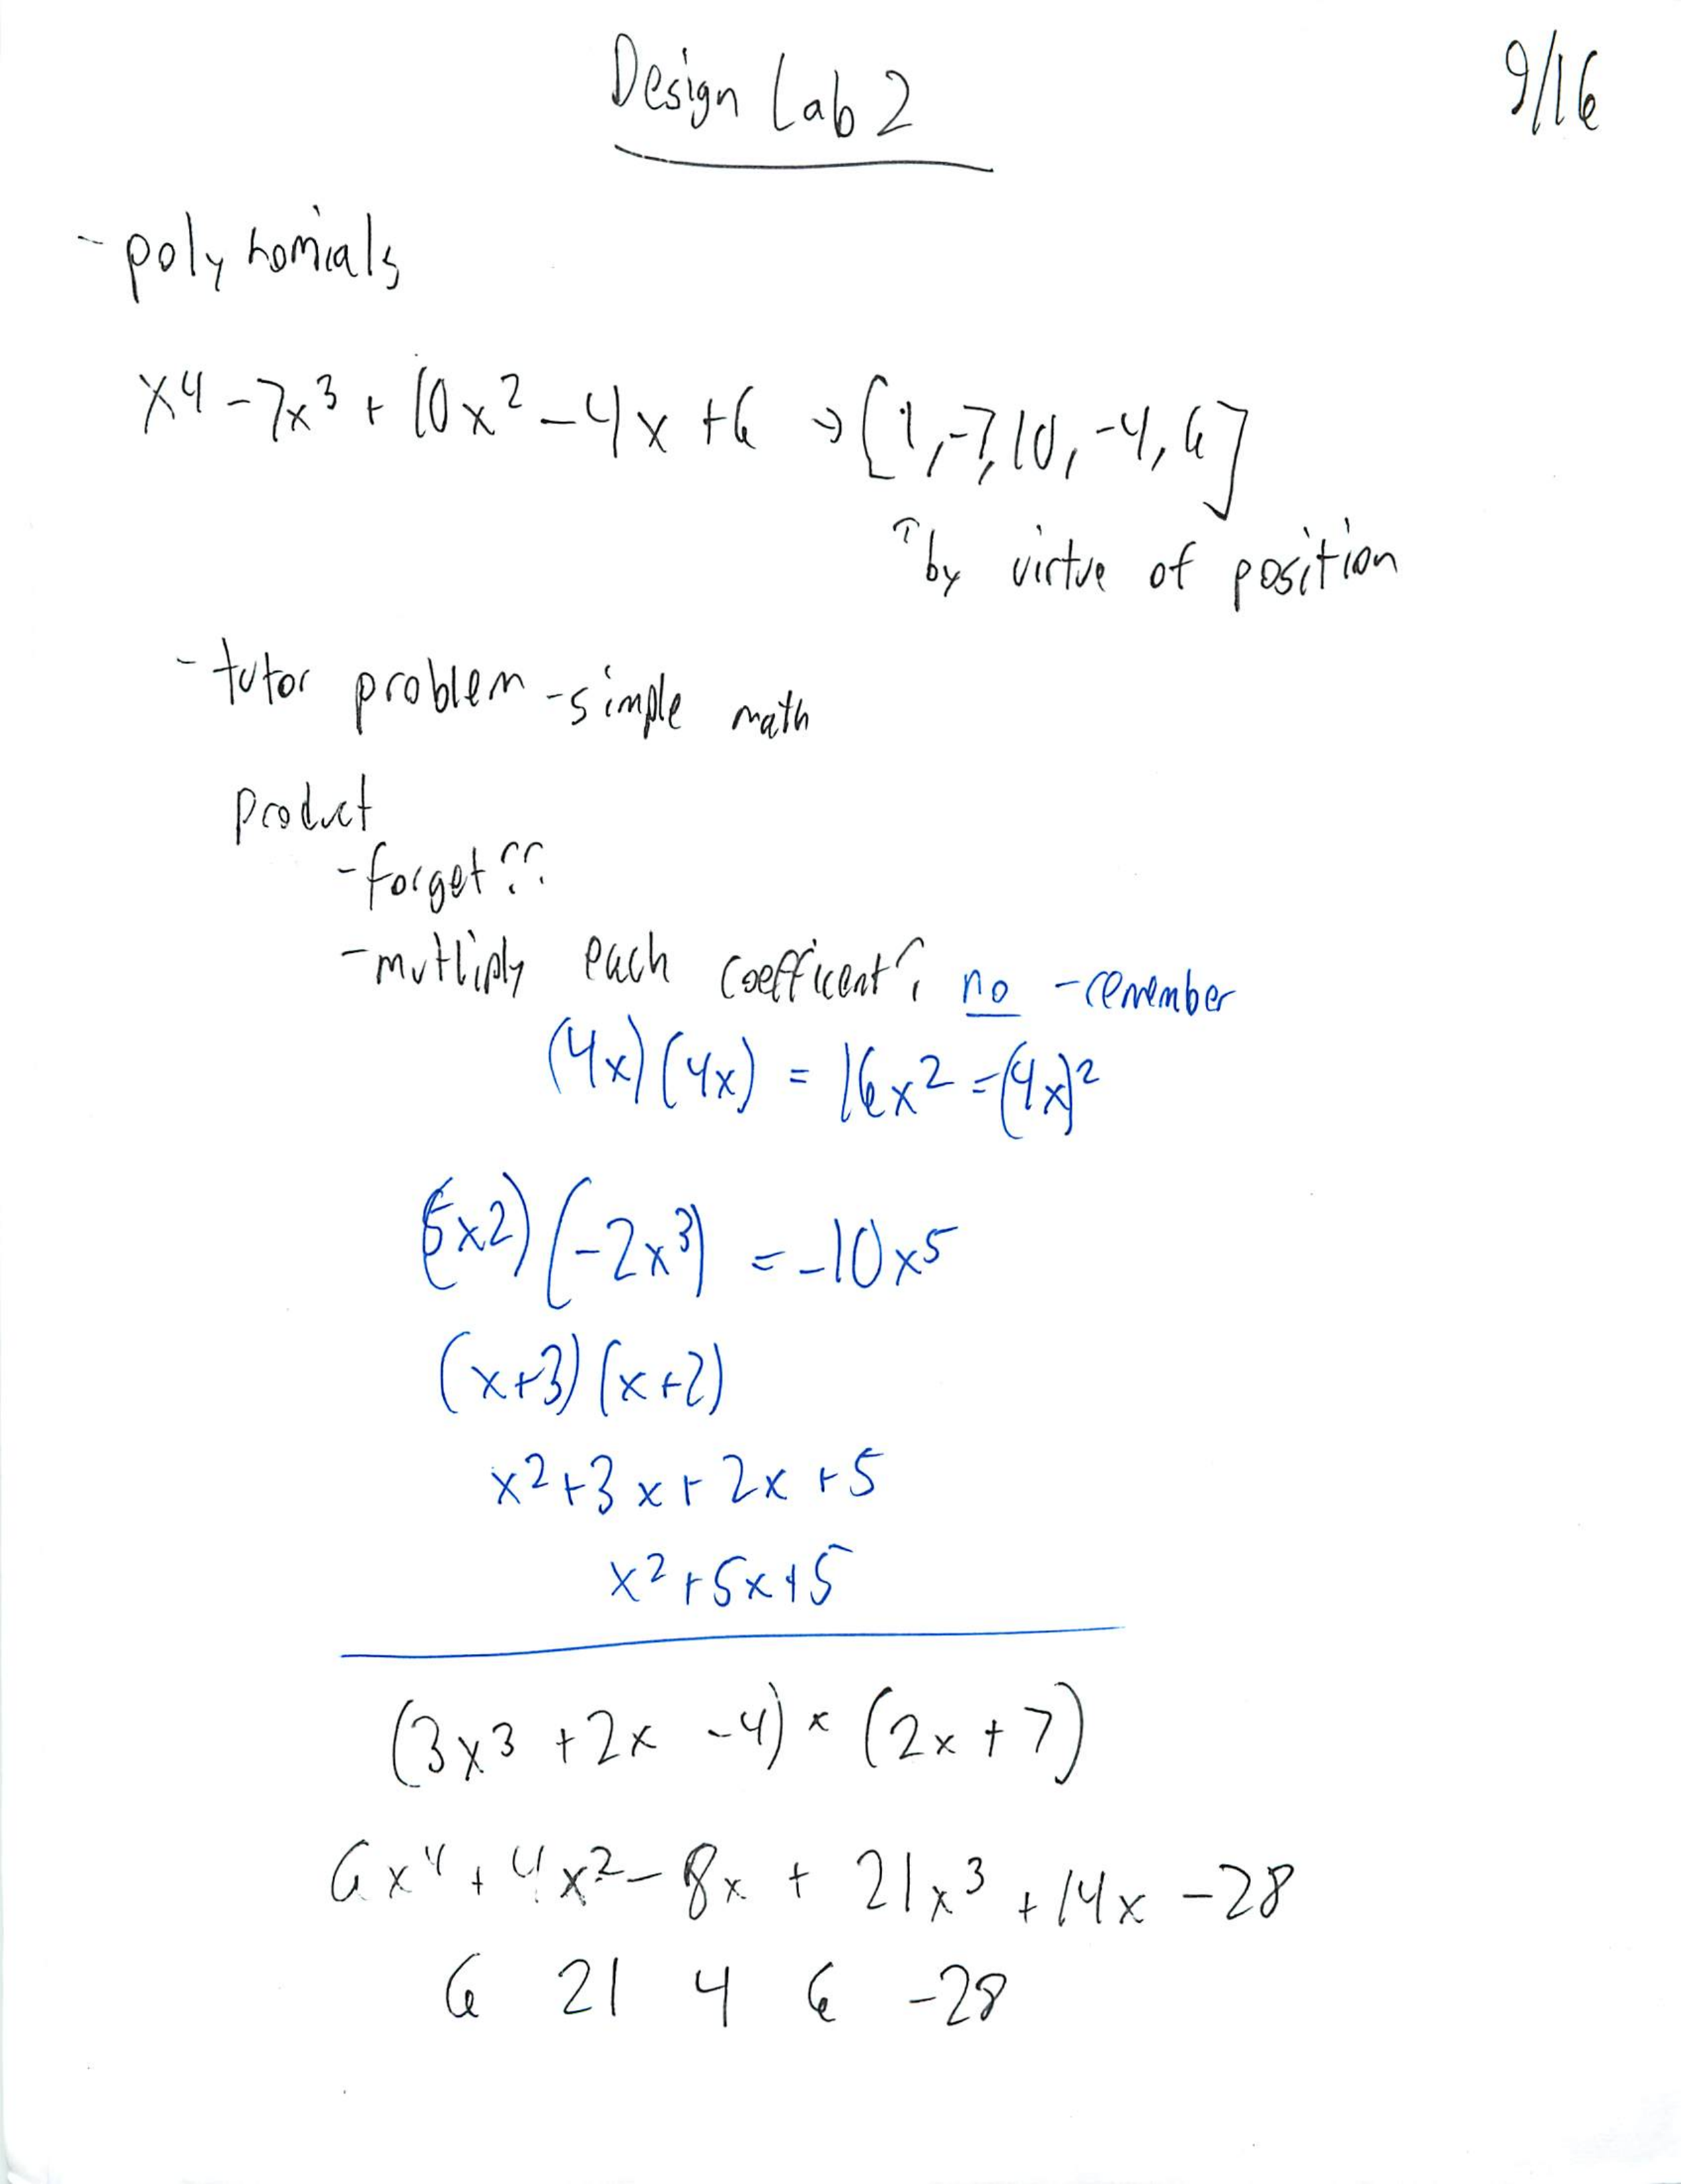 Design Lab 2
9/16
- polynomials
x⁴ - 7x³ + 10x² - 4x + 6 → [1, -7, 10, -4, 6]
↑ by virtue of position
- tutor problem - simple math
product
- forget??
- mutliply each coefficent? no - remember
(4x)(4x) = 16x² = (4x)²
(5x2)(-2x³) = -10x⁵
(x+3)(x+2)
x² + 3x + 2x + 5
x² + 5x + 5
(3x³ + 2x - 4) * (2x + 7)
6x⁴ + 4x² - 8x + 21x³ + 14x - 28
6 21 4 6 -28